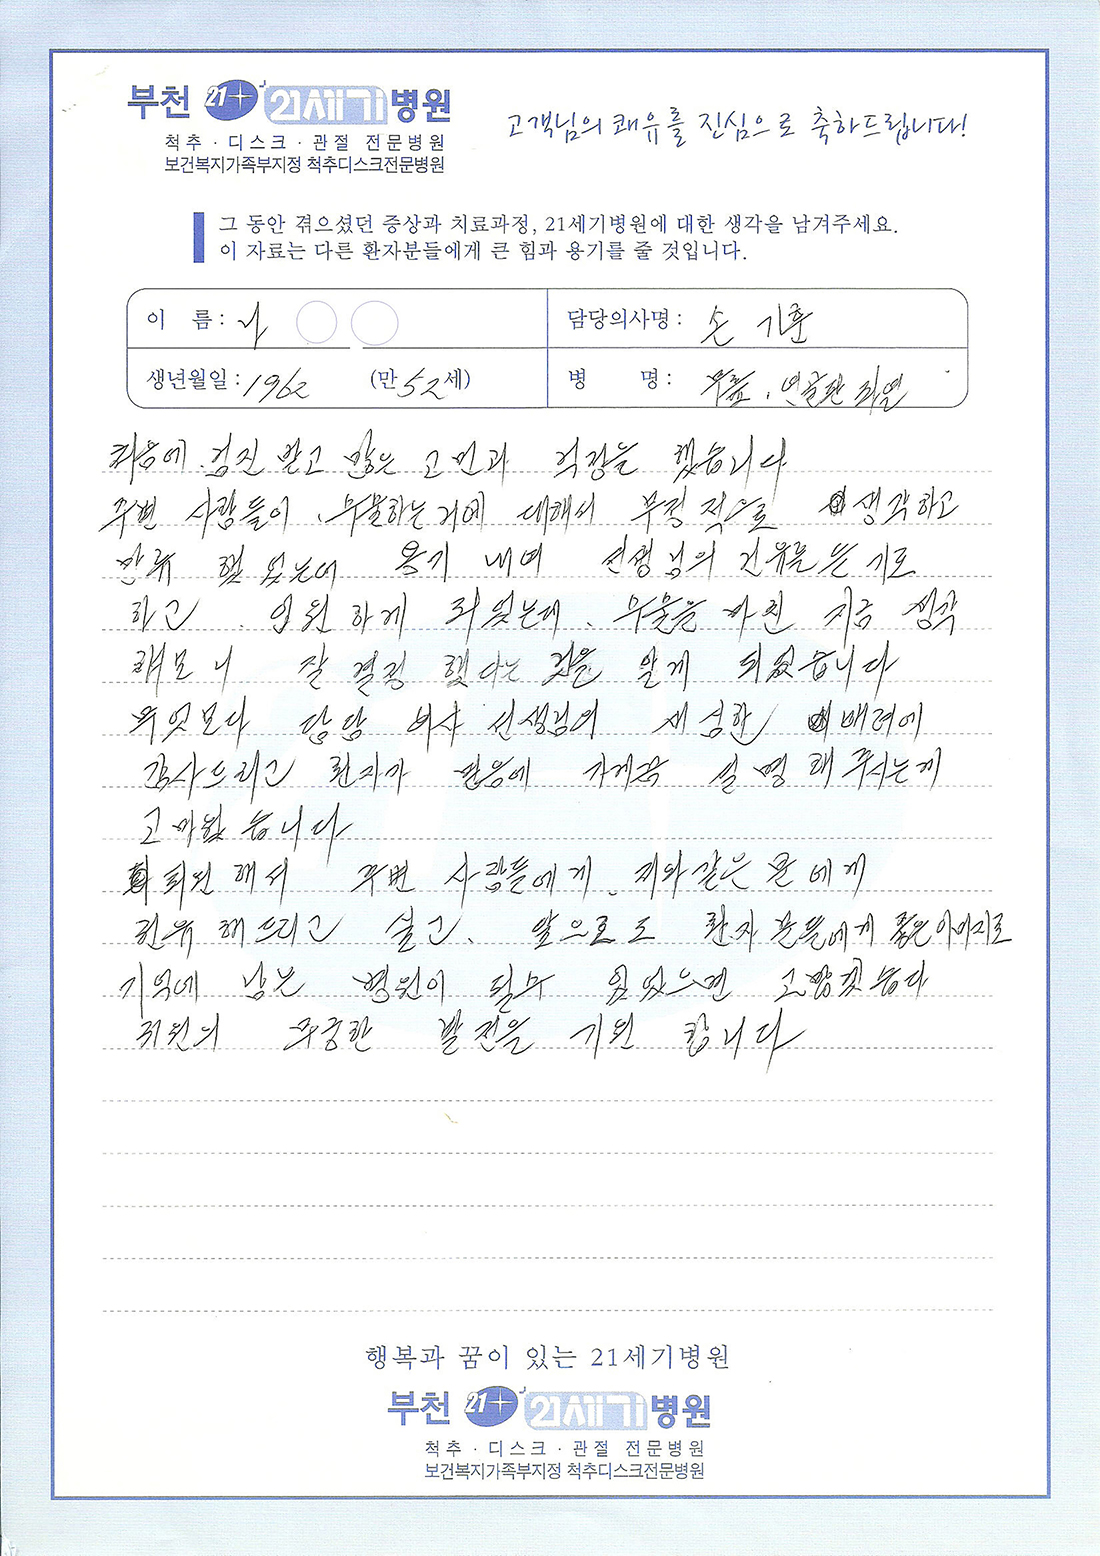 부천 21+ 21세기병원
척추 · 디스크 · 관절 전문병원
보건복지가족부지정 척추디스크전문병원
고객님의 쾌유를 진심으로 축하드립니다!
그 동안 겪으셨던 증상과 치료과정, 21세기병원에 대한 생각을 남겨주세요.
이 자료는 다른 환자분들에게 큰 힘과 용기를 줄 것입니다.
이 름 : 나
담당의사명 : 손 기훈
생년월일 : 1962 (만 52 세)
병 명 : 무릎. 연골판 파열
처음에. 검진 받고 많은 고민과 걱정을 했습니다
주변 사람들이. 수술하는거에 대해서 부정적으로 생각하고
만류 했었는데 용기 내여 선생님의 권유를 믿기로
하고. 입원하게 되었는데. 수술을 마친 지금 생각
해보니 잘 결정 했다는 것을 알게 되었습니다
무엇보다 담당 의사 선생님의 세심한 배려에
감사드리고 환자가 믿음에 가게끔 설명해 주시는게
고마웠습니다
퇴원해서 주변 사람들에게. 저와같은 분에게
권유해드리고 싶고. 앞으로도 환자분들에게 좋은이미지로
기억에 남는 병원이 될수 있었으면 고맙겠습다
귀원의 무궁한 발전을 기원 합니다
행복과 꿈이 있는 21세기병원
부천 21+ 21세기병원
척추 · 디스크 · 관절 전문병원
보건복지가족부지정 척추디스크전문병원